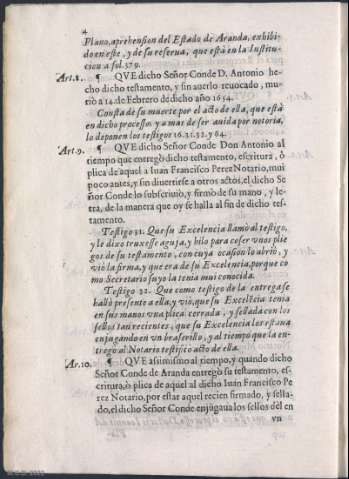 4
Plano, aprehension del Estado de Aranda, exhibi-
do en este, y de su reserva, que està en la Institu-
cion a fol.379.
Art.8. ¶ QVE dicho Señor Conde D. Antonio he-
cho dicho testamento, y sin averlo reuocado, mu-
riò a 14.de Febrero dédicho año 1654.
Consta de su muerte por el acto de ella, que està
en dicho processo: y a mas de ser auida por notoria,
lo deponen los testigos 16.31.32. y 64.
Art.9. ¶ QVE dicho Señor Conde Don Antonio al
tiempo que entregò dicho testamento, escritura, ò
plica de aquel a Iuan Francisco Perez Notario, mui
poco antes, y sin diuertirse a otros actos, el dicho Se
ñor Conde lo subscriuiò, y firmò de su mano, y le-
tra, de la manera que oy se halla al fin de dicho tes-
tamento.
Testigo 31. Que su Excelencia llamò al testigo,
y le dixo truxesse aguja, y hilo para coser vnos plie-
gos de su testamento, con cuya ocasion lo abriò, y
viò la firma, y que era de su Excelencia, porque co-
mo Secretario suyo la tenia mui conocida.
Testigo 32. Que como testigo de la entrega se
hallò presente a ella, y viò, que su Excelēcia tenia
en sus manos vna plica cerrada, y sellada con los
sellos tan recientes, que su Excelencia los estaua
enjugando en vn braserillo, y al tiempo que la en-
tregò al Notario testificò acto de ella.
Ar.10. ¶ QVE assimismo al tiempo, y quando dicho
Señor Conde de Aranda entregò su testamento, es-
critura, ò plica de aquel al dicho Iuan Francisco Pe
rez Notario, por estar aquel recien firmado, y sella-
do, el dicho Señor Conde enjugaua los sellos dèl en
vn